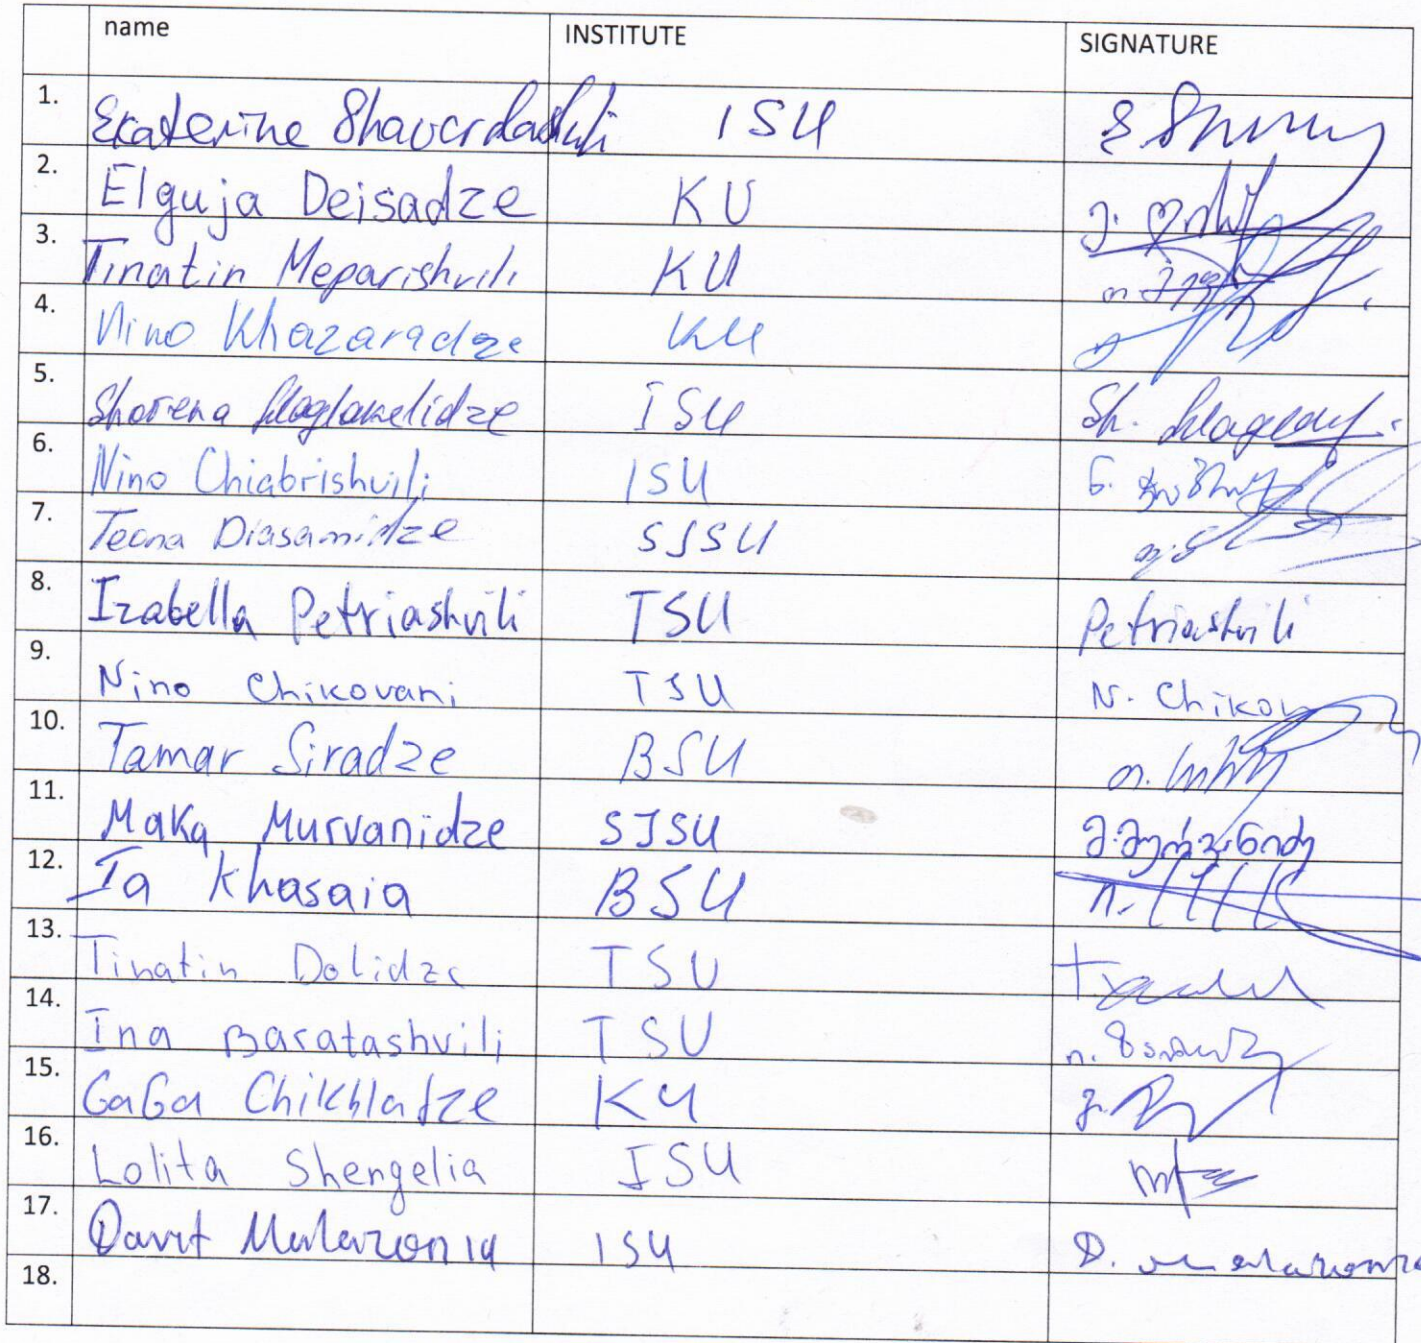 name INSTITUTE SIGNATURE
1. Ekaterine Shaverdashvili ISU
2. Elguja Deisadze KU
3. Tinatin Meparishvili KU
4. Nino Khazaradze KU
5. Shorena Maglakelidze ISU Sh.
6. Nino Chiabrishvili ISU
7. Teona Diasamidze SJSU
8. Izabella Petriashvili TSU Petriashvili
9. Nino Chikovani TSU N. Chikov
10. Tamar Siradze BSU
11. Maka Murvanidze SJSU
12. Ia Khasaia BSU
13. Tinatin Dolidze TSU
14. Ina Baratashvili TSU
15. GaGa Chikhladze KU
16. Lolita Shengelia ISU
17. Davit Malazonia ISU D. Malazonia
18.